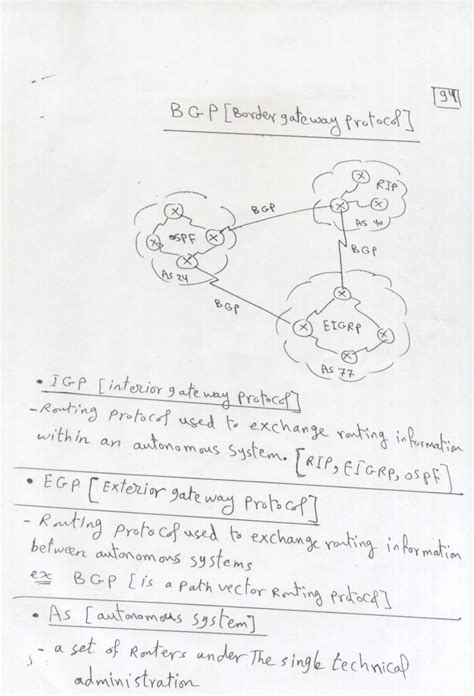 94
BGP [Border gateway protocol]
RIP
BGP
AS 40
OSPF
BGP
AS 24
BGP
EIGRP
AS 77
• IGP [interior gateway protocol]
- Routing protocol used to exchange routing information
within an autonomous system. [RIP, EIGRP, OSPF]
• EGP [Exterior gateway protocol]
- Routing protocol used to exchange routing information
between autonomous systems
ex BGP [is a path vector Routing protocol]
• As [autonomous system]
- a set of Routers under The single technical
administration